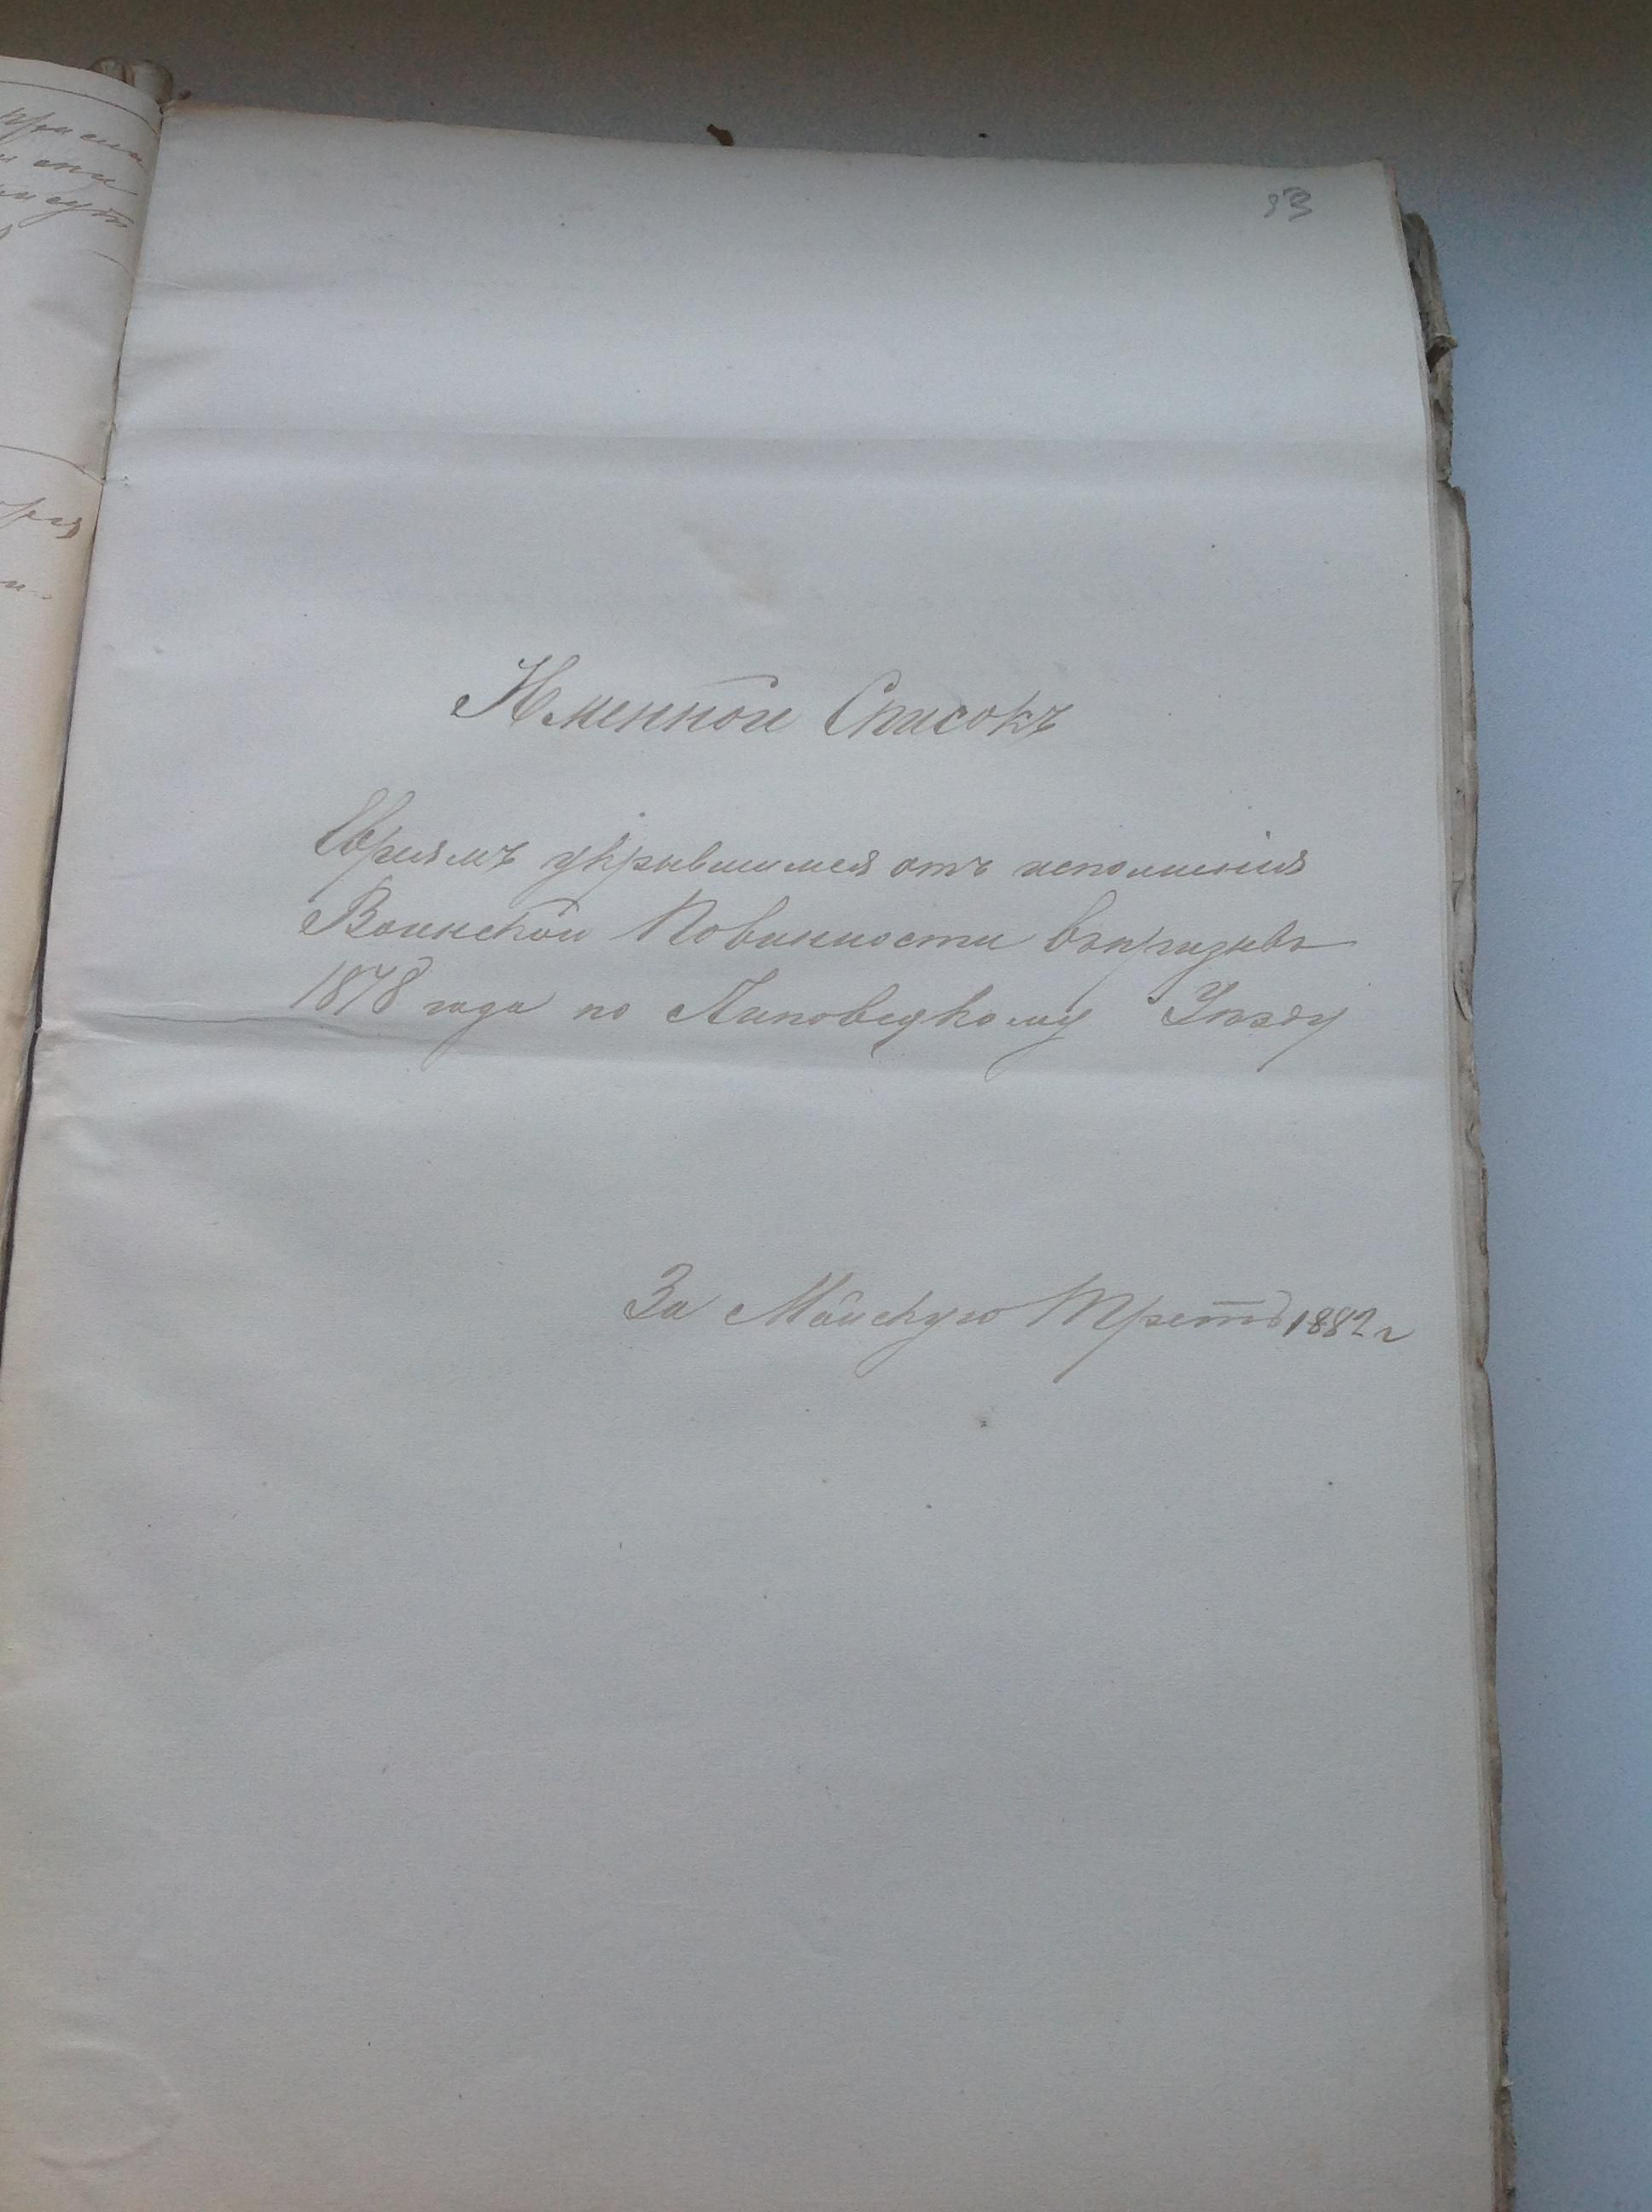 53
Именной Списокъ
Евреямъ укрывшимся отъ исполненія
Воинской Повинности въ призывъ
1878 года по Липовецкому Уѣзду
За Майскую Треть 1882 г